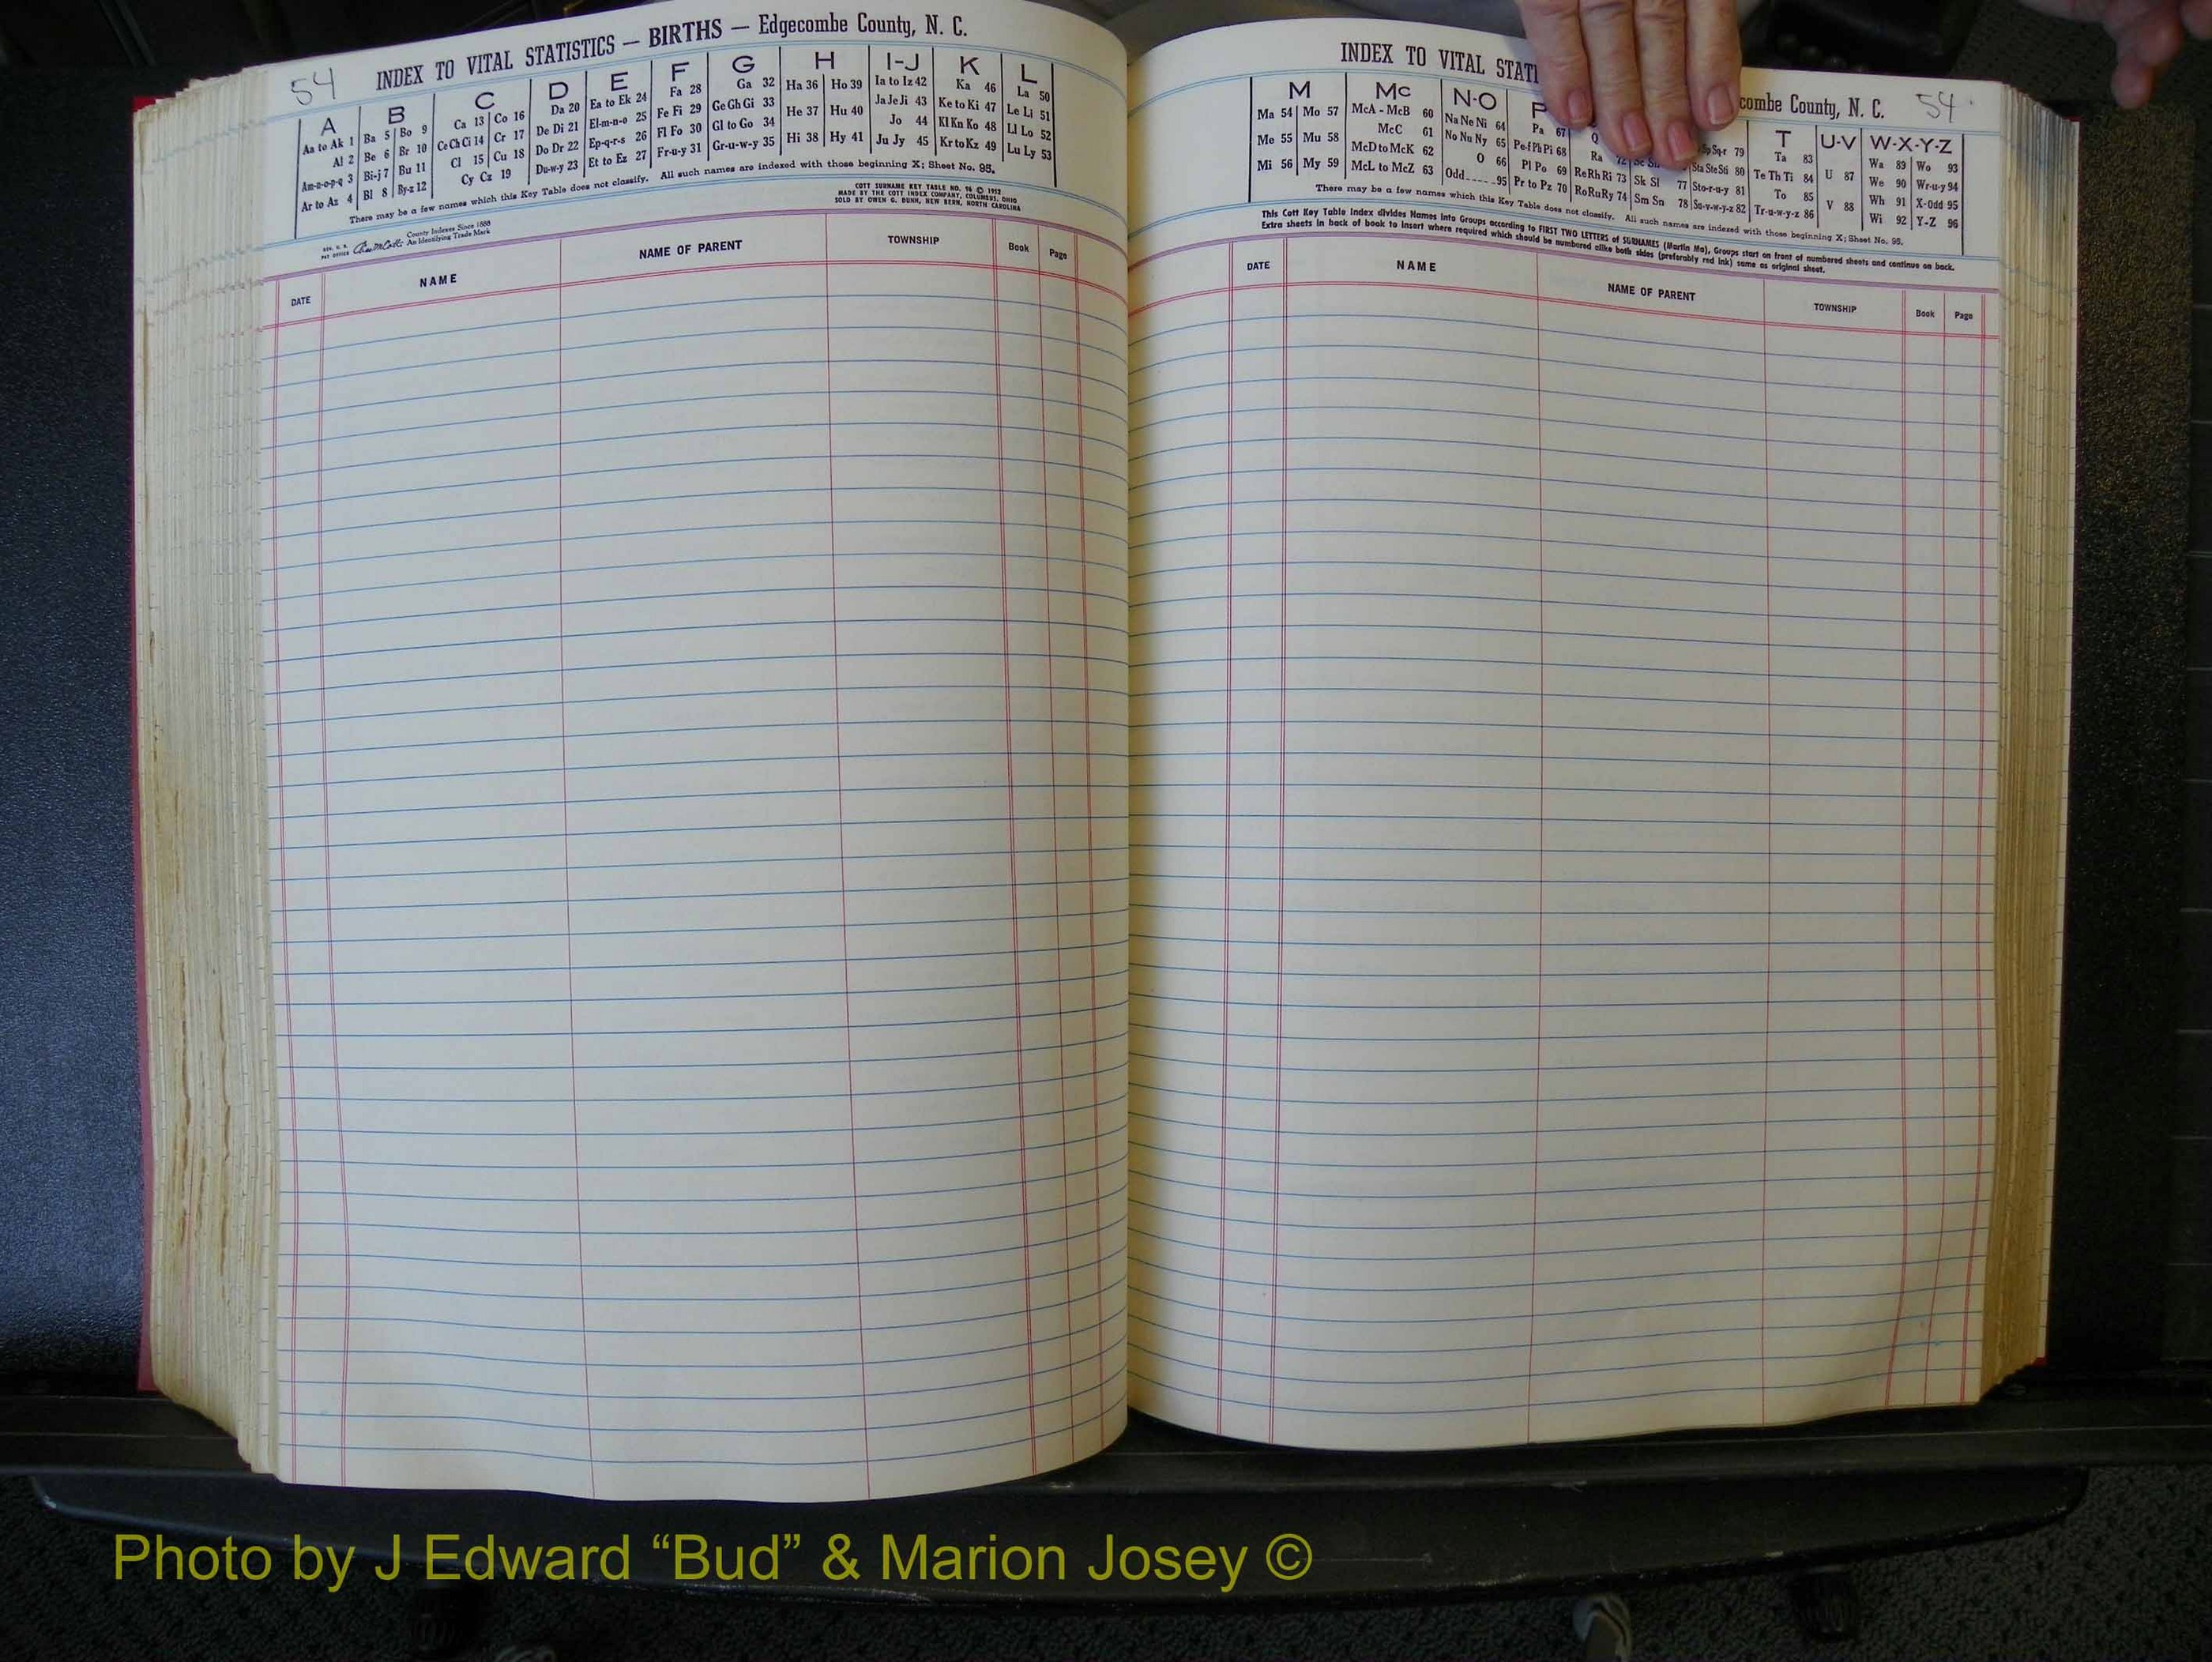 54 INDEX TO VITAL STATISTICS — BIRTHS — Edgecombe County, N. C.
A B C D E F G H I-J K L
Aa to Ak 1 Ba 5 Bo 9 Ca 13 Co 16 Da 20 Ea to Ek 24 Fa 28 Ga 32 Ha 36 Ho 39 Ia to Iz 42 Ka 46 La 50
Al 2 Be 6 Br 10 Ce Ch Ci 14 Cr 17 De Di 21 El-m-n-o 25 Fe Fi 29 Ge Gh Gi 33 He 37 Hu 40 Ja Je Ji 43 Ke to Ki 47 Le Li 51
Am-n-o-p-q 3 Bi-j 7 Bu 11 Cl 15 Cu 18 Do Dr 22 Ep-q-r-s 26 Fl Fo 30 Gl to Go 34 Hi 38 Hy 41 Jo 44 Kl Kn Ko 48 Ll Lo 52
Ar to Az 4 Bl 8 By-z 12 Cy Cz 19 Du-w-y 23 Et to Ez 27 Fr-u-y 31 Gr-u-w-y 35 Ju Jy 45 Kr to Kz 49 Lu Ly 53
There may be a few names which this Key Table does not classify. All such names are indexed with those beginning X; Sheet No. 95.
COTT SURNAME KEY TABLE NO. 96 © 1952
MADE BY THE COTT INDEX COMPANY, COLUMBUS, OHIO
SOLD BY OWEN G. DUNN, NEW BERN, NORTH CAROLINA
County Indexes Since 1888
An Identifying Trade Mark
DATE NAME NAME OF PARENT TOWNSHIP Book Page
INDEX TO VITAL STATI combe County, N. C. 54
M Mc N-O P T U-V W-X-Y-Z
Ma 54 Mo 57 McA - McB 60 Na Ne Ni 64 Pa 67 Q 79 Ta 83 U 87 Wa 89 Wo 93
Me 55 Mu 58 McC 61 No Nu Ny 65 Pe-f Ph Pi 68 Ra 72 Sta Ste Sti 80 Te Th Ti 84 V 88 We 90 Wr-u-y 94
Mi 56 My 59 McD to McK 62 O 66 Pl Po 69 Re Rh Ri 73 Sk Sl 77 Sto-r-u-y 81 To 85 Wh 91 X-Odd 95
McL to McZ 63 Odd 95 Pr to Pz 70 Ro Ru Ry 74 Sm Sn 78 Su-v-w-y-z 82 Tr-u-w-y-z 86 Wi 92 Y-Z 96
There may be a few names which this Key Table does not classify. All such names are indexed with those beginning X; Sheet No. 95.
This Cott Key Table Index divides Names into Groups according to FIRST TWO LETTERS of SURNAMES (Martin Ma), Groups start on front of numbered sheets and continue on back.
Extra sheets in back of book to insert where required which should be numbered alike both sides (preferably red ink) same as original sheet.
DATE NAME NAME OF PARENT TOWNSHIP Book Page
Photo by J Edward “Bud” & Marion Josey ©